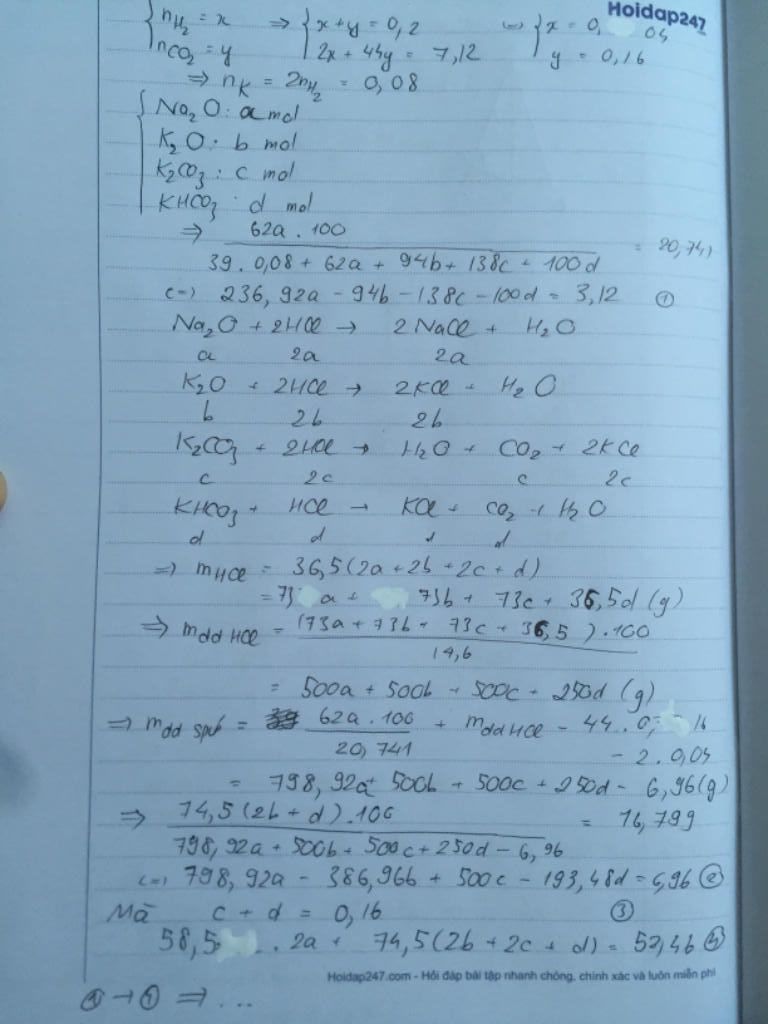 Hoidap247
{ nH2 = x ⇒ { x + y = 0,2 ⇔ { x = 0,04
nCO2 = y 2x + 44y = 7,12 y = 0,16
⇒ nK = 2nH2 = 0,08
{ Na2O : a mol
K2O : b mol
K2CO3 : c mol
KHCO3 : d mol
⇒ 62a . 100 / 39 . 0,08 + 62a + 94b + 138c + 100d = 20,741
<=> 236,92a - 94b - 138c - 100d = 3,12 ①
Na2O + 2HCl → 2NaCl + H2O
a 2a 2a
K2O + 2HCl → 2KCl + H2O
b 2b 2b
K2CO3 + 2HCl → H2O + CO2 + 2KCl
c 2c c 2c
KHCO3 + HCl → KCl + CO2 + H2O
d d d d
⇒ mHCl = 36,5(2a + 2b + 2c + d)
= 73a + 73b + 73c + 36,5d (g)
⇒ mdd HCl = (73a + 73b + 73c + 36,5 ) . 100 / 14,6
= 500a + 500b + 500c + 250d (g)
⇒ mdd spứ = 62a . 100 / 20,741 + mdd HCl - 44 . 0,16
- 2 . 0,04
= 798,92a + 500b + 500c + 250d - 6,96 (g)
⇒ 74,5(2b + d) . 100 / 798,92a + 500b + 500c + 250d - 6,96 = 16,799
<=> 798,92a - 386,96b + 500c - 193,48d = 6,96 ②
Mà c + d = 0,16 ③
58,5 . 2a + 74,5(2b + 2c + d) = 52,46 ④
Hoidap247.com - Hỏi đáp bài tập nhanh chóng, chính xác và luôn miễn phí
① → ④ ⇒ ...